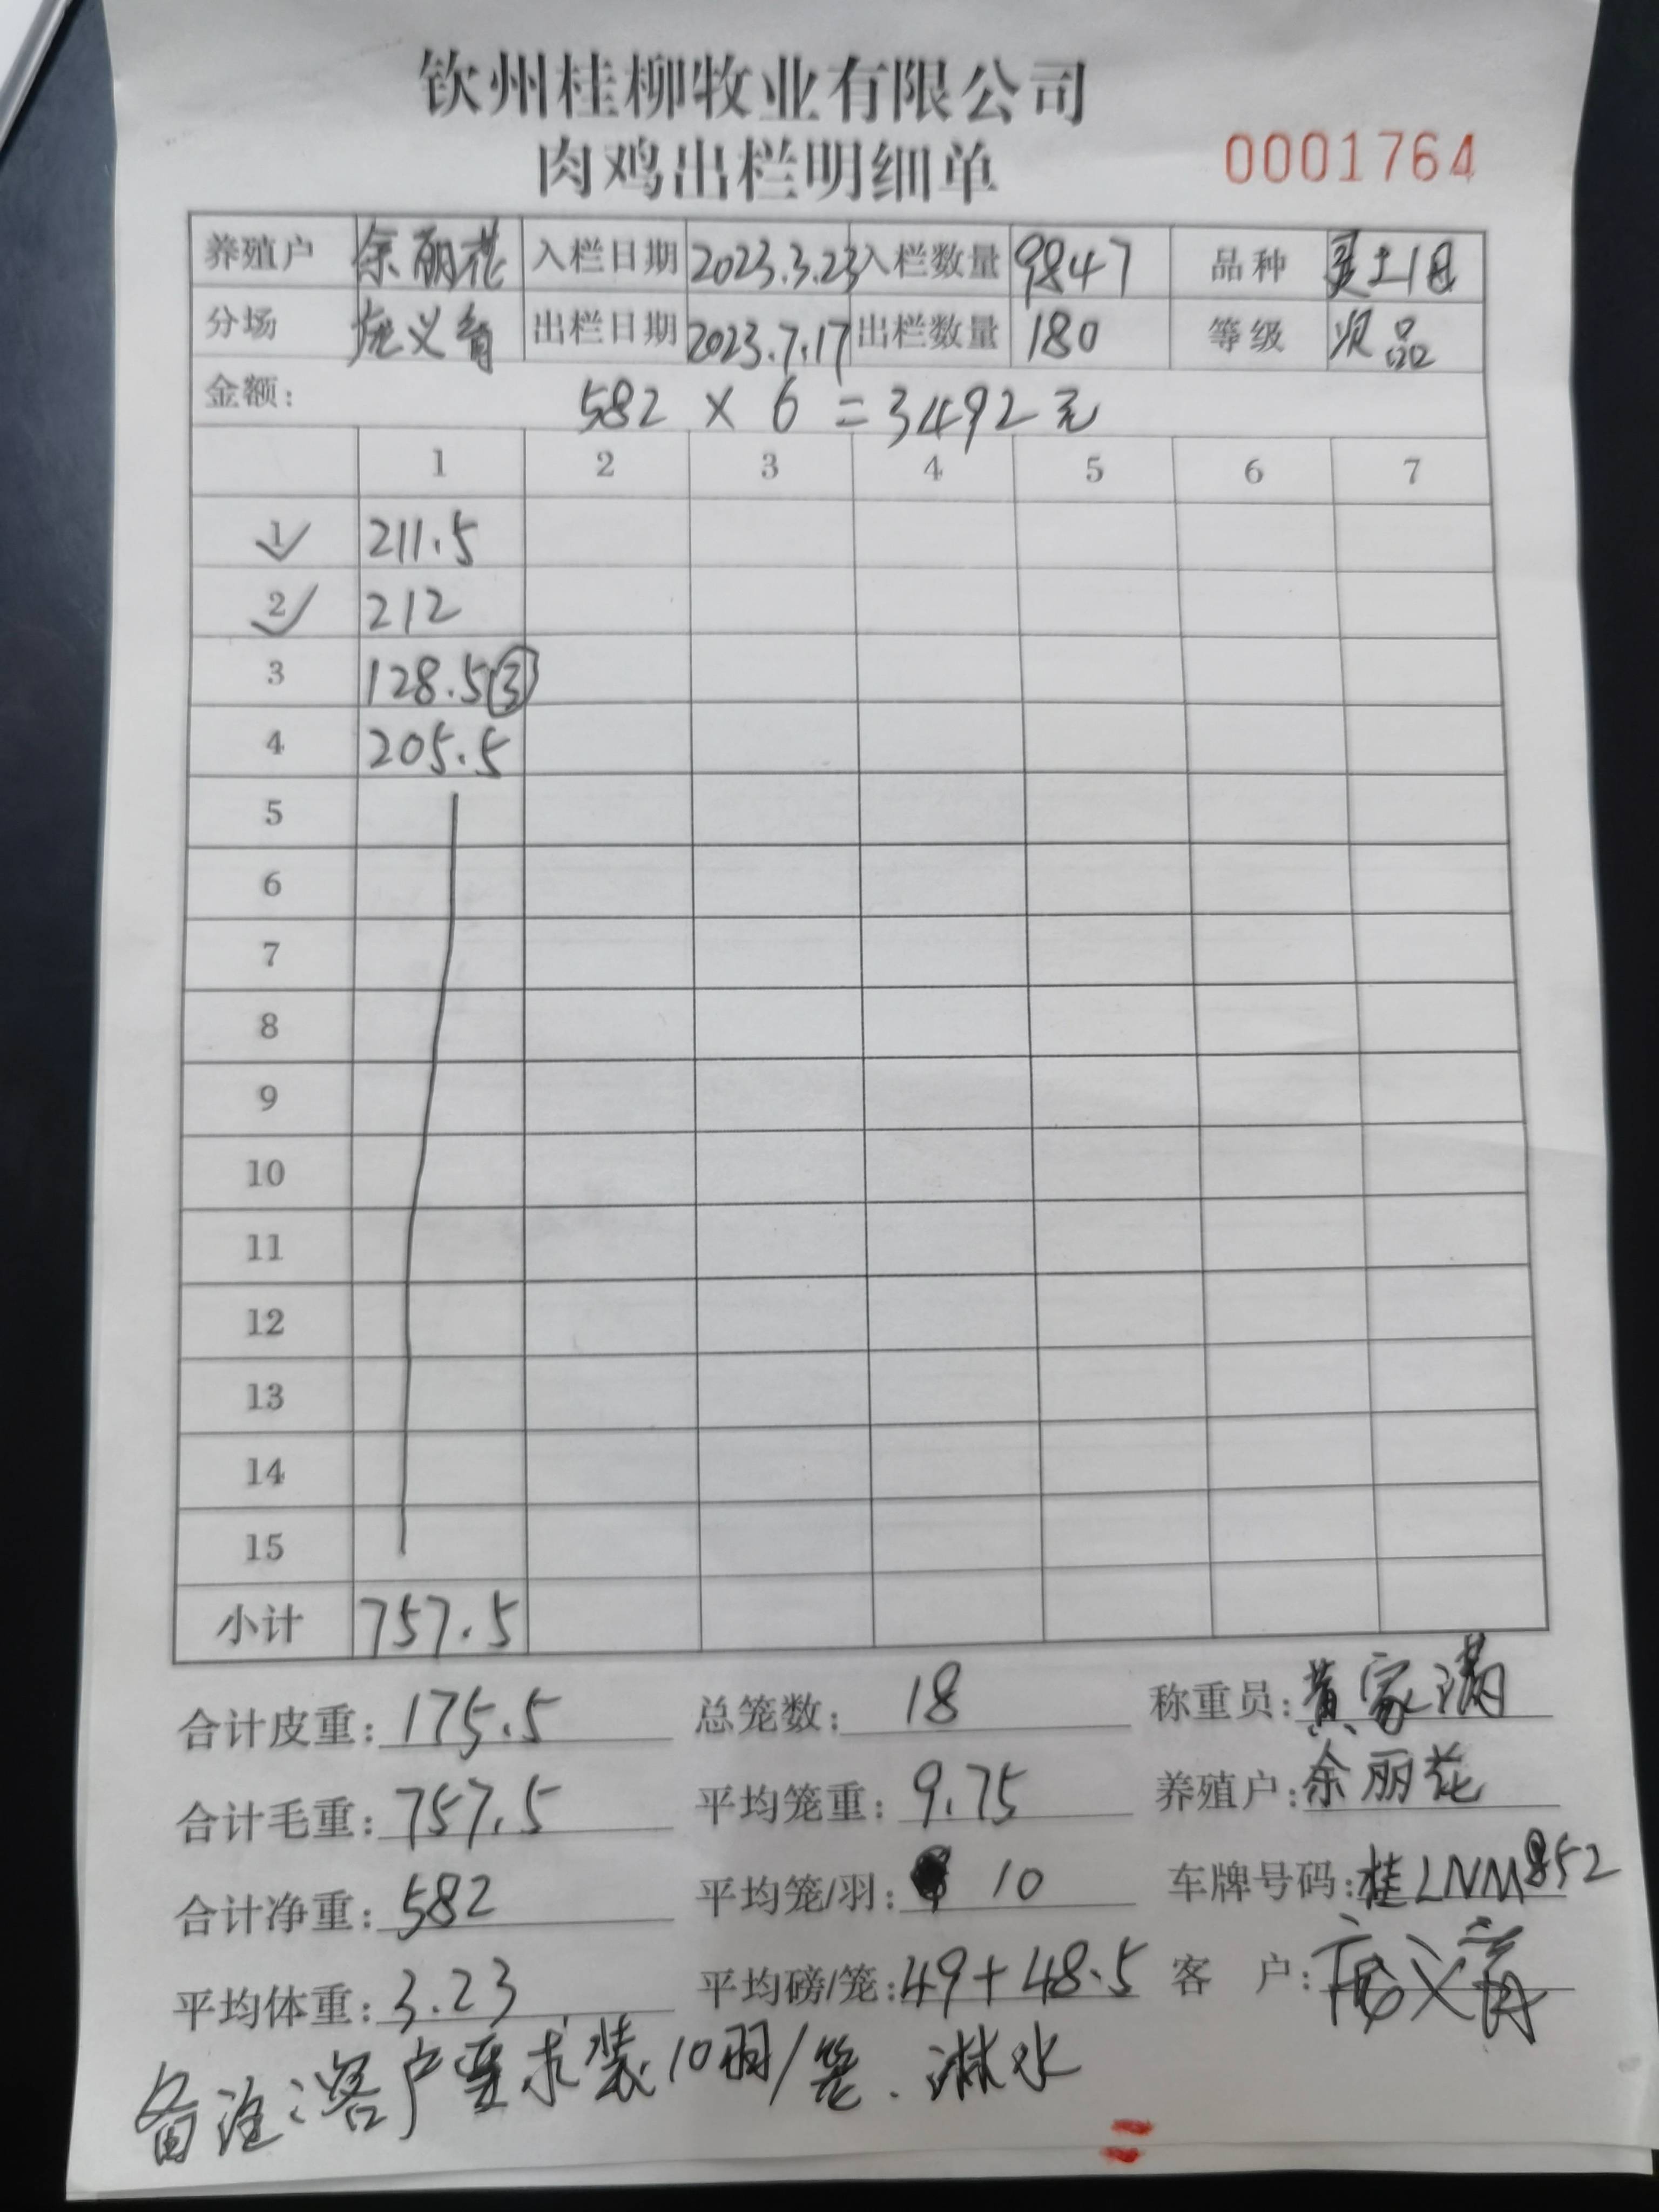 钦州桂柳牧业有限公司
肉鸡出栏明细单 0001764
养殖户 余丽花 入栏日期 2023.3.23 入栏数量 9847 品种 土
分场 义 出栏日期 2023.7.17 出栏数量 180 等级 次品
金额: 582 × 6 = 3492元
1 2 3 4 5 6 7
1 211.5
2 212
3 128.5 ③
4 205.5
5
6
7
8
9
10
11
12
13
14
15
小计 757.5
合计皮重: 175.5 总笼数: 18 称重员: 黄家满
合计毛重: 757.5 平均笼重: 9.75 养殖户: 余丽花
合计净重: 582 平均笼/羽: 10 车牌号码: 桂LNM852
平均体重: 3.23 平均磅/笼: 49+48.5 客 户: 义
备注:客户要求装10羽/笼.淋水